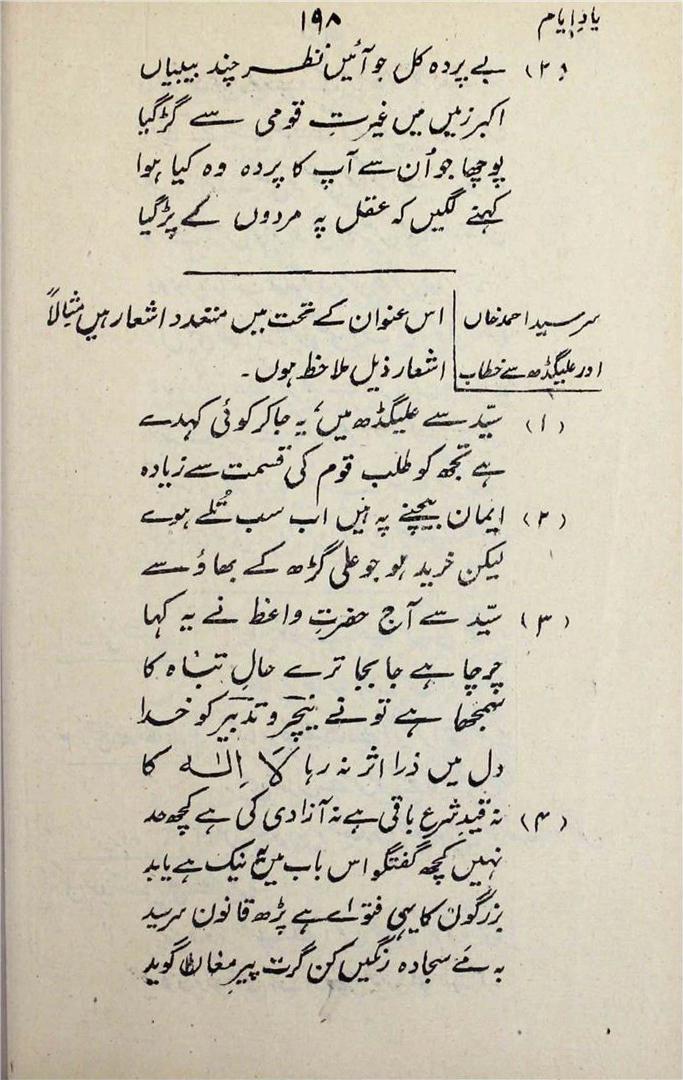 یادِ ایام ۱۹۸
(۲) بے پردہ کل جو آئیں نظر چند بیبیاں
اکبر زمیں میں غیرتِ قومی سے گڑ گیا
پوچھا جو اُن سے آپ کا پردہ وہ کیا ہوا
کہنے لگیں کہ عقل پہ مردوں کے پڑ گیا
سر سید احمد خاں اس عنوان کے تحت میں متعدد اشعار ہیں مثالاً
اور علیگڈھ سے خطاب اشعار ذیل ملاحظہ ہوں۔
(۱) سیّد سے علیگڈھ میں، یہ جا کر کوئی کہدے
ہے تجھ کو طلب قوم کی قسمت سے زیادہ
(۲) ایمان بیچنے پہ ہیں اب سب تُلے ہوے
لیکن خرید ہو جو علی گڑھ کے بھاؤ سے
(۳) سیّد سے آج حضرتِ واعظ نے یہ کہا
چرچا ہے جا بجا ترے حالِ تباہ کا
سمجھا ہے تو نے نیچر و تدبیر کو خدا
دل میں ذرا اثر نہ رہا لَا اِلٰہ کا
(۴) نہ قیدِ شرع باقی ہے نہ آزادی کی ہے کچھ حد
نہیں کچھ گفتگو اس باب میں یہ نیک ہے یا بد
بزرگوں کا یہی فتوےٰ ہے پڑھ قانون سر سید
بہ مَے سجادہ رنگیں کن گرت پیرِ مغاں گوید